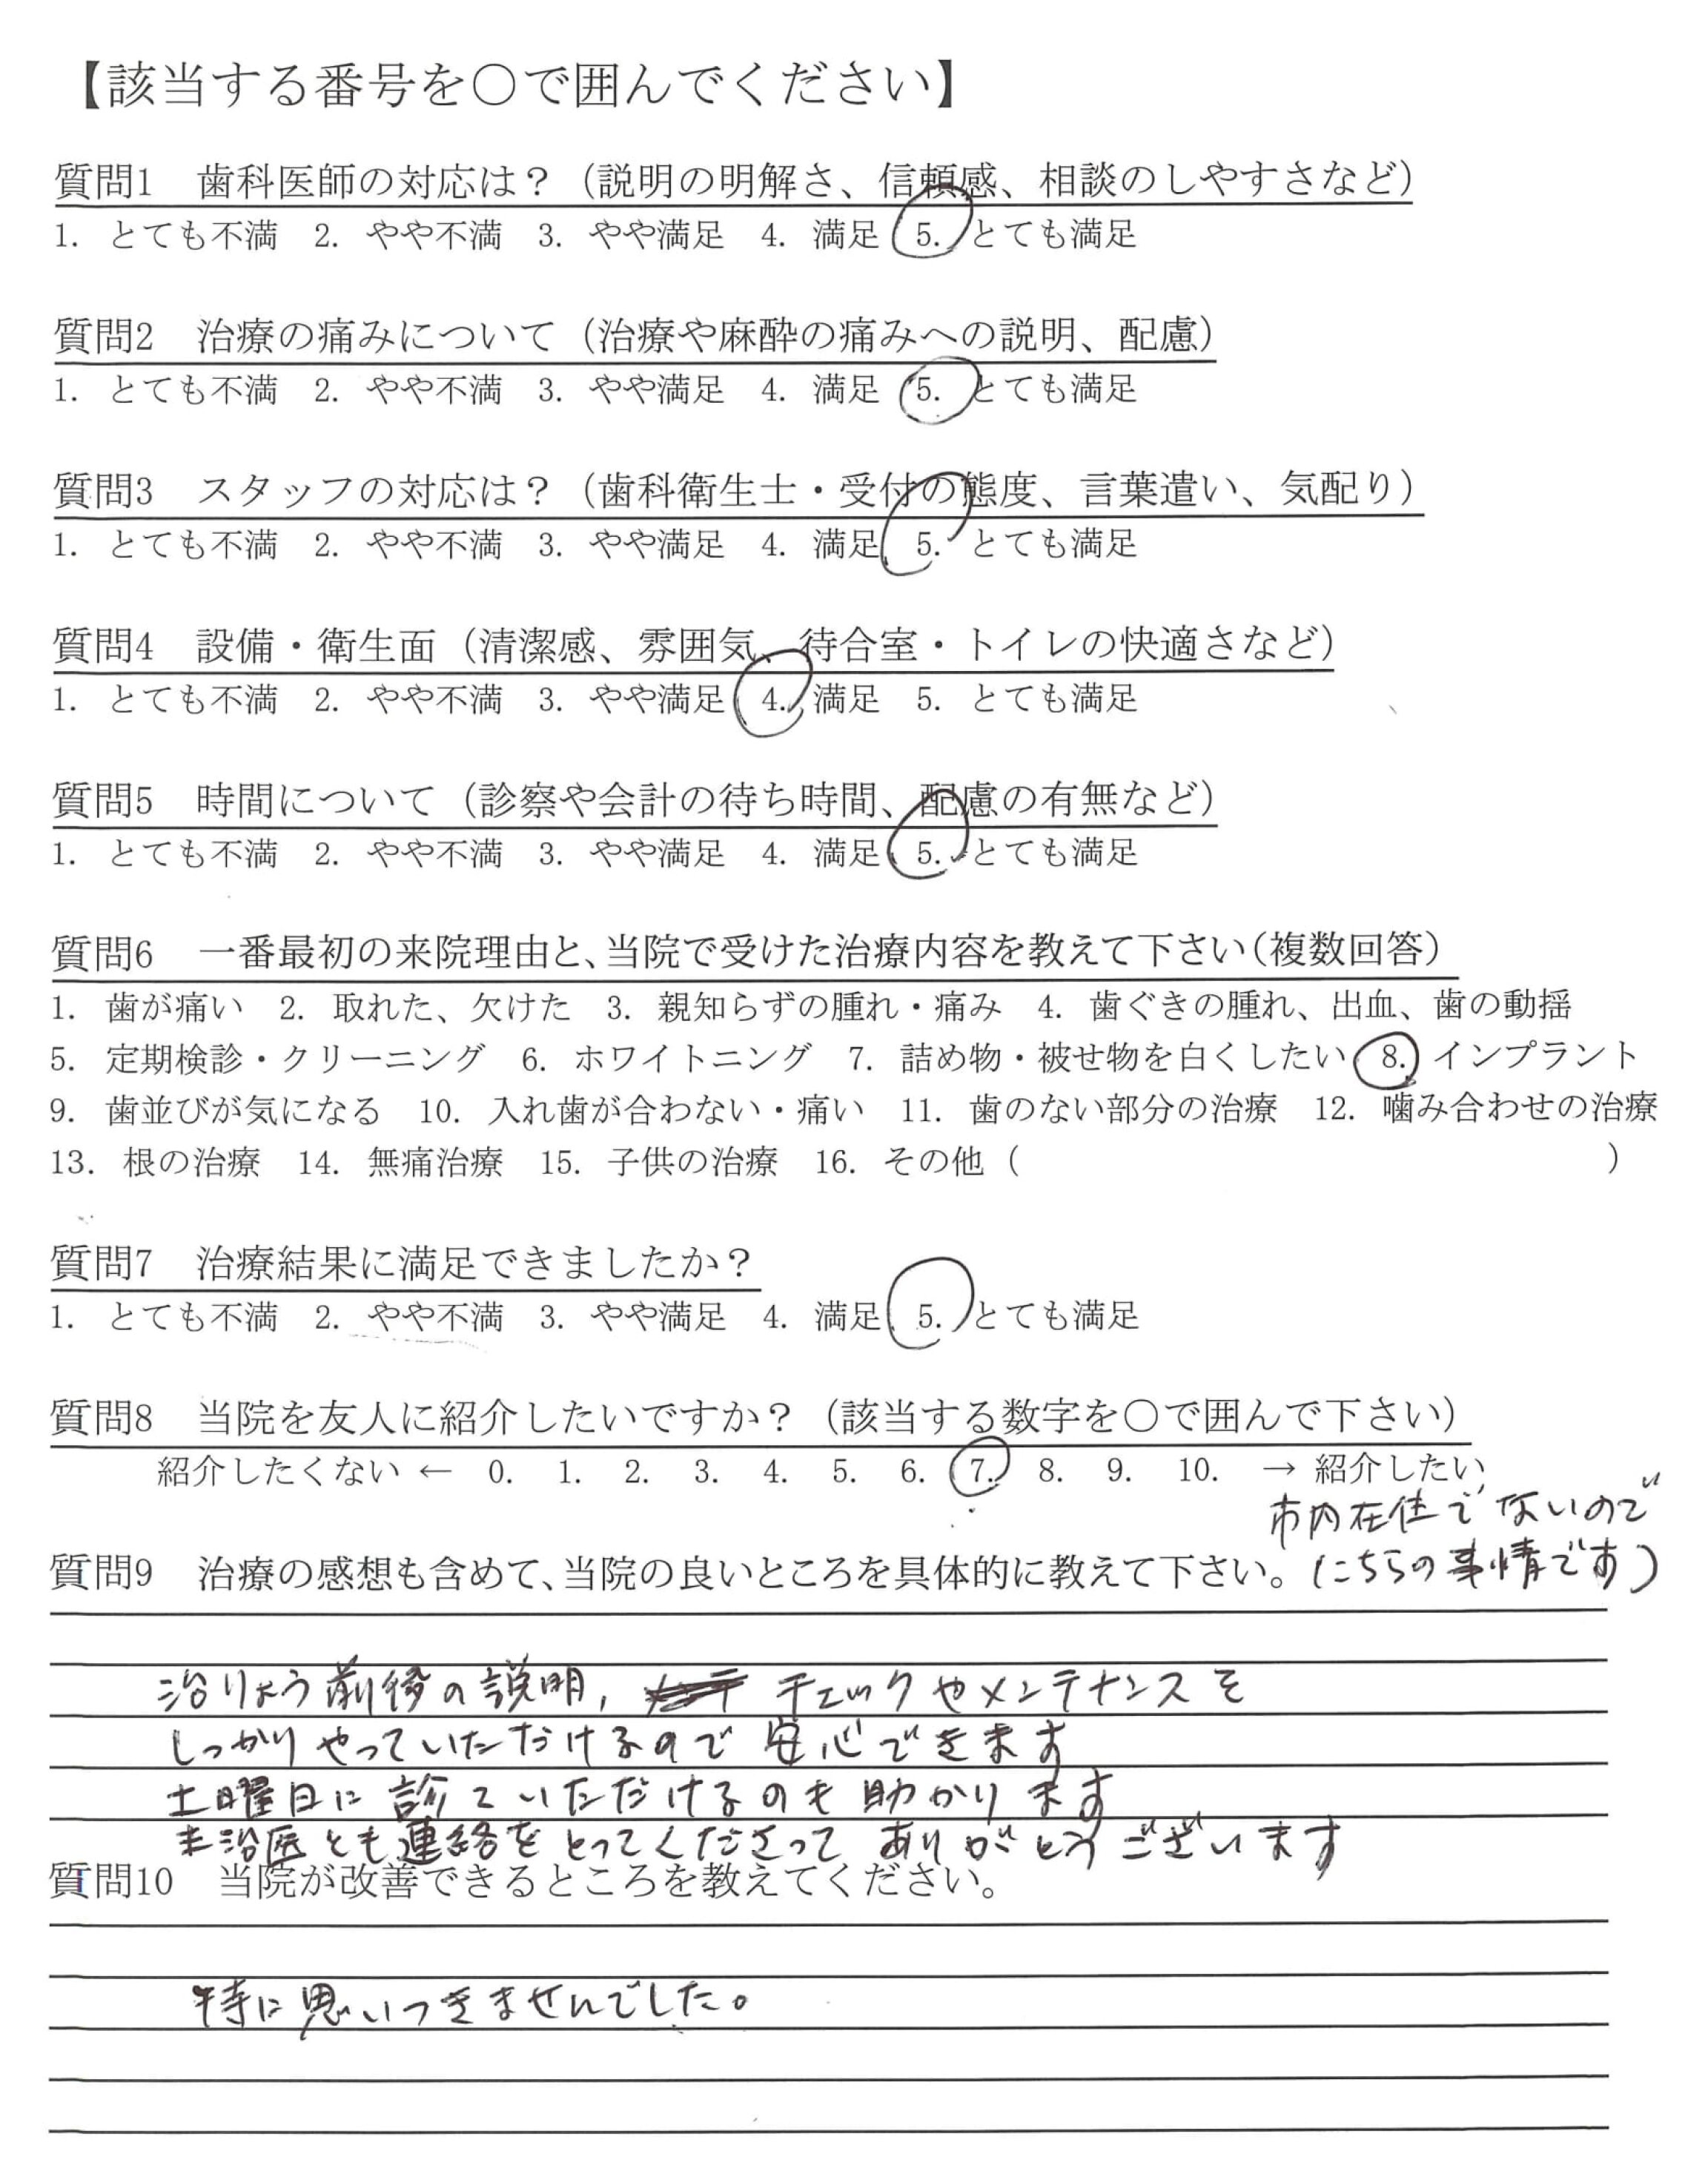 【該当する番号を〇で囲んでください】
質問1　歯科医師の対応は？（説明の明解さ、信頼感、相談のしやすさなど）
1. とても不満　2. やや不満　3. やや満足　4. 満足　5. とても満足
質問2　治療の痛みについて（治療や麻酔の痛みへの説明、配慮）
1. とても不満　2. やや不満　3. やや満足　4. 満足　5. とても満足
質問3　スタッフの対応は？（歯科衛生士・受付の態度、言葉遣い、気配り）
1. とても不満　2. やや不満　3. やや満足　4. 満足　5. とても満足
質問4　設備・衛生面（清潔感、雰囲気、待合室・トイレの快適さなど）
1. とても不満　2. やや不満　3. やや満足　4. 満足　5. とても満足
質問5　時間について（診察や会計の待ち時間、配慮の有無など）
1. とても不満　2. やや不満　3. やや満足　4. 満足　5. とても満足
質問6　一番最初の来院理由と、当院で受けた治療内容を教えて下さい（複数回答）
1. 歯が痛い　2. 取れた、欠けた　3. 親知らずの腫れ・痛み　4. 歯ぐきの腫れ、出血、歯の動揺
5. 定期検診・クリーニング　6. ホワイトニング　7. 詰め物・被せ物を白くしたい　8. インプラント
9. 歯並びが気になる　10. 入れ歯が合わない・痛い　11. 歯のない部分の治療　12. 噛み合わせの治療
13. 根の治療　14. 無痛治療　15. 子供の治療　16. その他（　　　）
質問7　治療結果に満足できましたか？
1. とても不満　2. やや不満　3. やや満足　4. 満足　5. とても満足
質問8　当院を友人に紹介したいですか？（該当する数字を〇で囲んで下さい）
紹介したくない ← 0. 1. 2. 3. 4. 5. 6. 7. 8. 9. 10. → 紹介したい
市内在住でないので
（こちらの事情です）
質問9　治療の感想も含めて、当院の良いところを具体的に教えて下さい。
治りょう前後の説明, チェックやメンテナンスを
しっかりやっていただけるので安心できます
土曜日に診ていただけるのも助かります
主治医とも連絡をとってくださってありがとうございます
質問10　当院が改善できるところを教えてください。
特に思いつきませんでした。